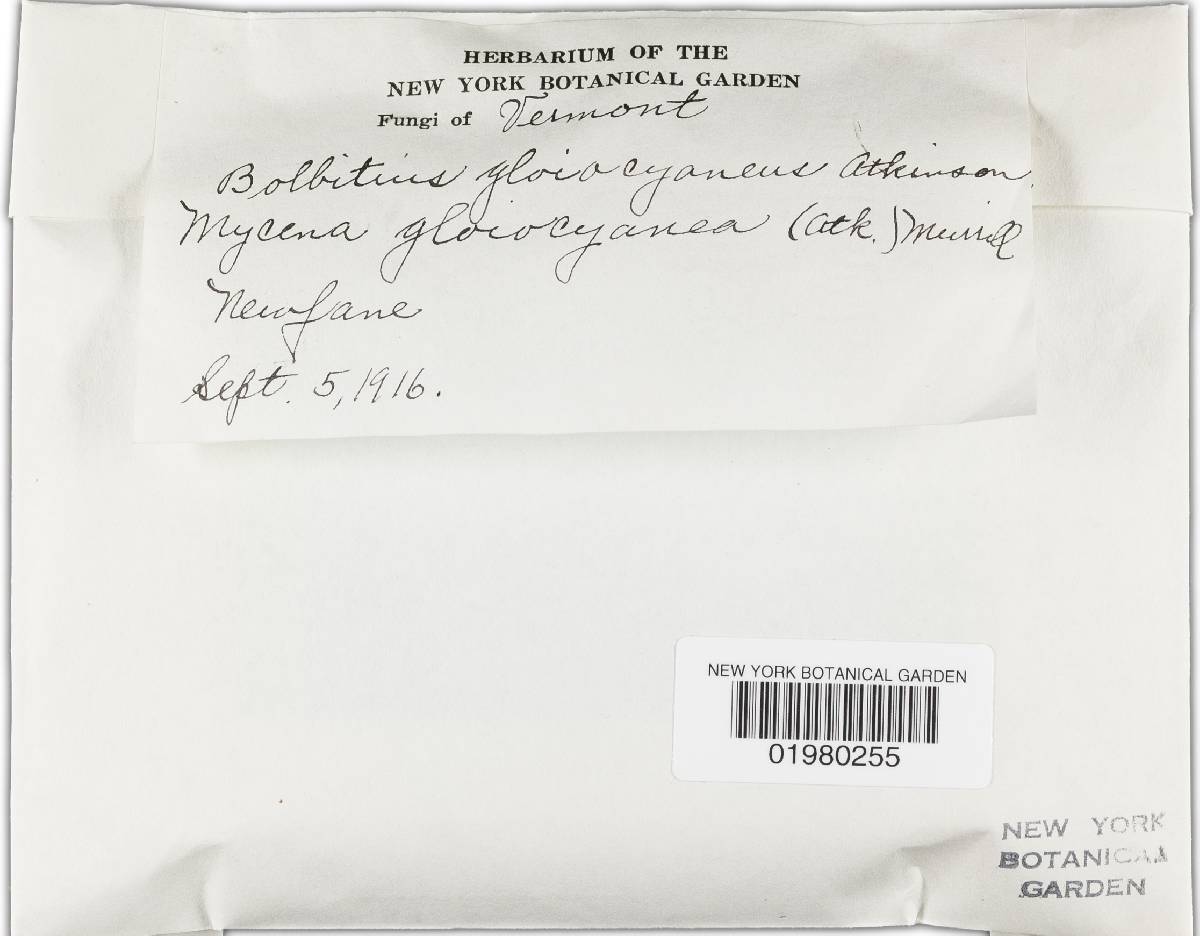 HERBARIUM OF THE
NEW YORK BOTANICAL GARDEN
Fungi of Vermont
Bolbitius gloiocyaneus Atkinson.
Mycena gloiocyanea (Atk.) Murrill
Newfane
Sept. 5, 1916.
NEW YORK BOTANICAL GARDEN
01980255
NEW YORK
BOTANICAL
GARDEN